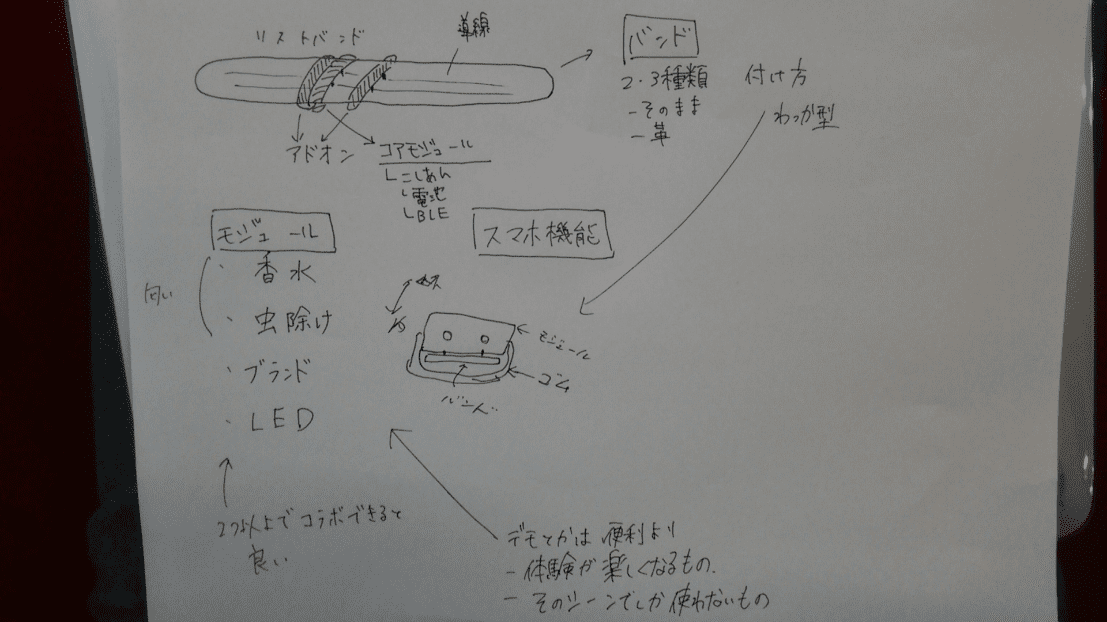 リストバンド
導線
アドオン
コアモジュール
└こしあん
└電池
└BLE
バンド
2・3種類
-そのまま
-革
付け方
わっか型
モジュール
匂い
・香水
・虫除け
・ブランド
・LED
2つ以上でコラボできると
良い
スマホ機能
モジュール
ゴム
バンド
デモとかは便利より
-体験が楽しくなるもの.
-そのシーンでしか使わないもの